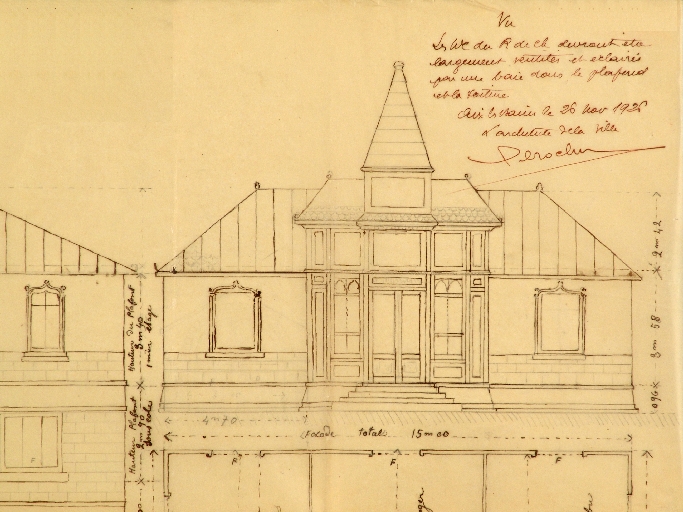 Vu
Les WC du R de ch. devront être
largement ventilés et éclairés
par une baie dans le plafond
et la toiture
Aix les bains le 26 Nov 1926
L'architecte de la Ville
2 m 42
3 m 58
0.96
Hauteur du Plafond
3 m 40
1 mier étage
Hauteur Plafond
2 m 90
sous sol
4 m 70
façade totale 15 m 00
F
F
F
F